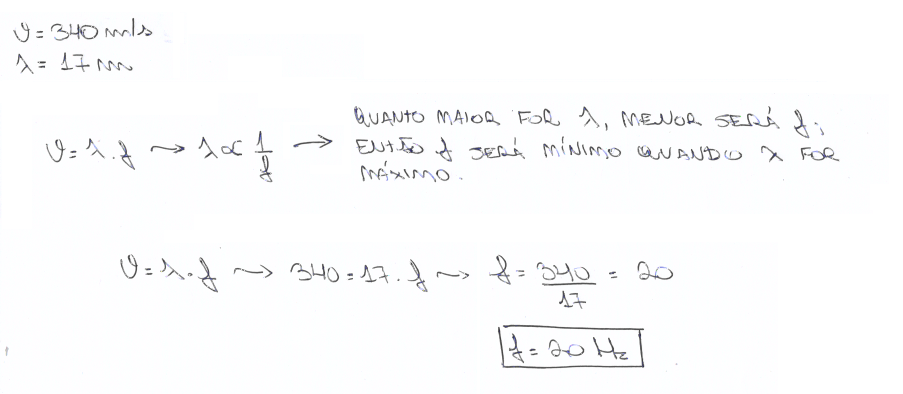 v = 340 m/s
λ = 17 m
v = λ.f → λ ∝ 1/f → QUANTO MAIOR FOR λ, MENOR SERÁ f;
ENTÃO f SERÁ MÍNIMO QUANDO λ FOR
MÁXIMO.
v = λ.f → 340 = 17.f → f = 340/17 = 20
f = 20 Hz